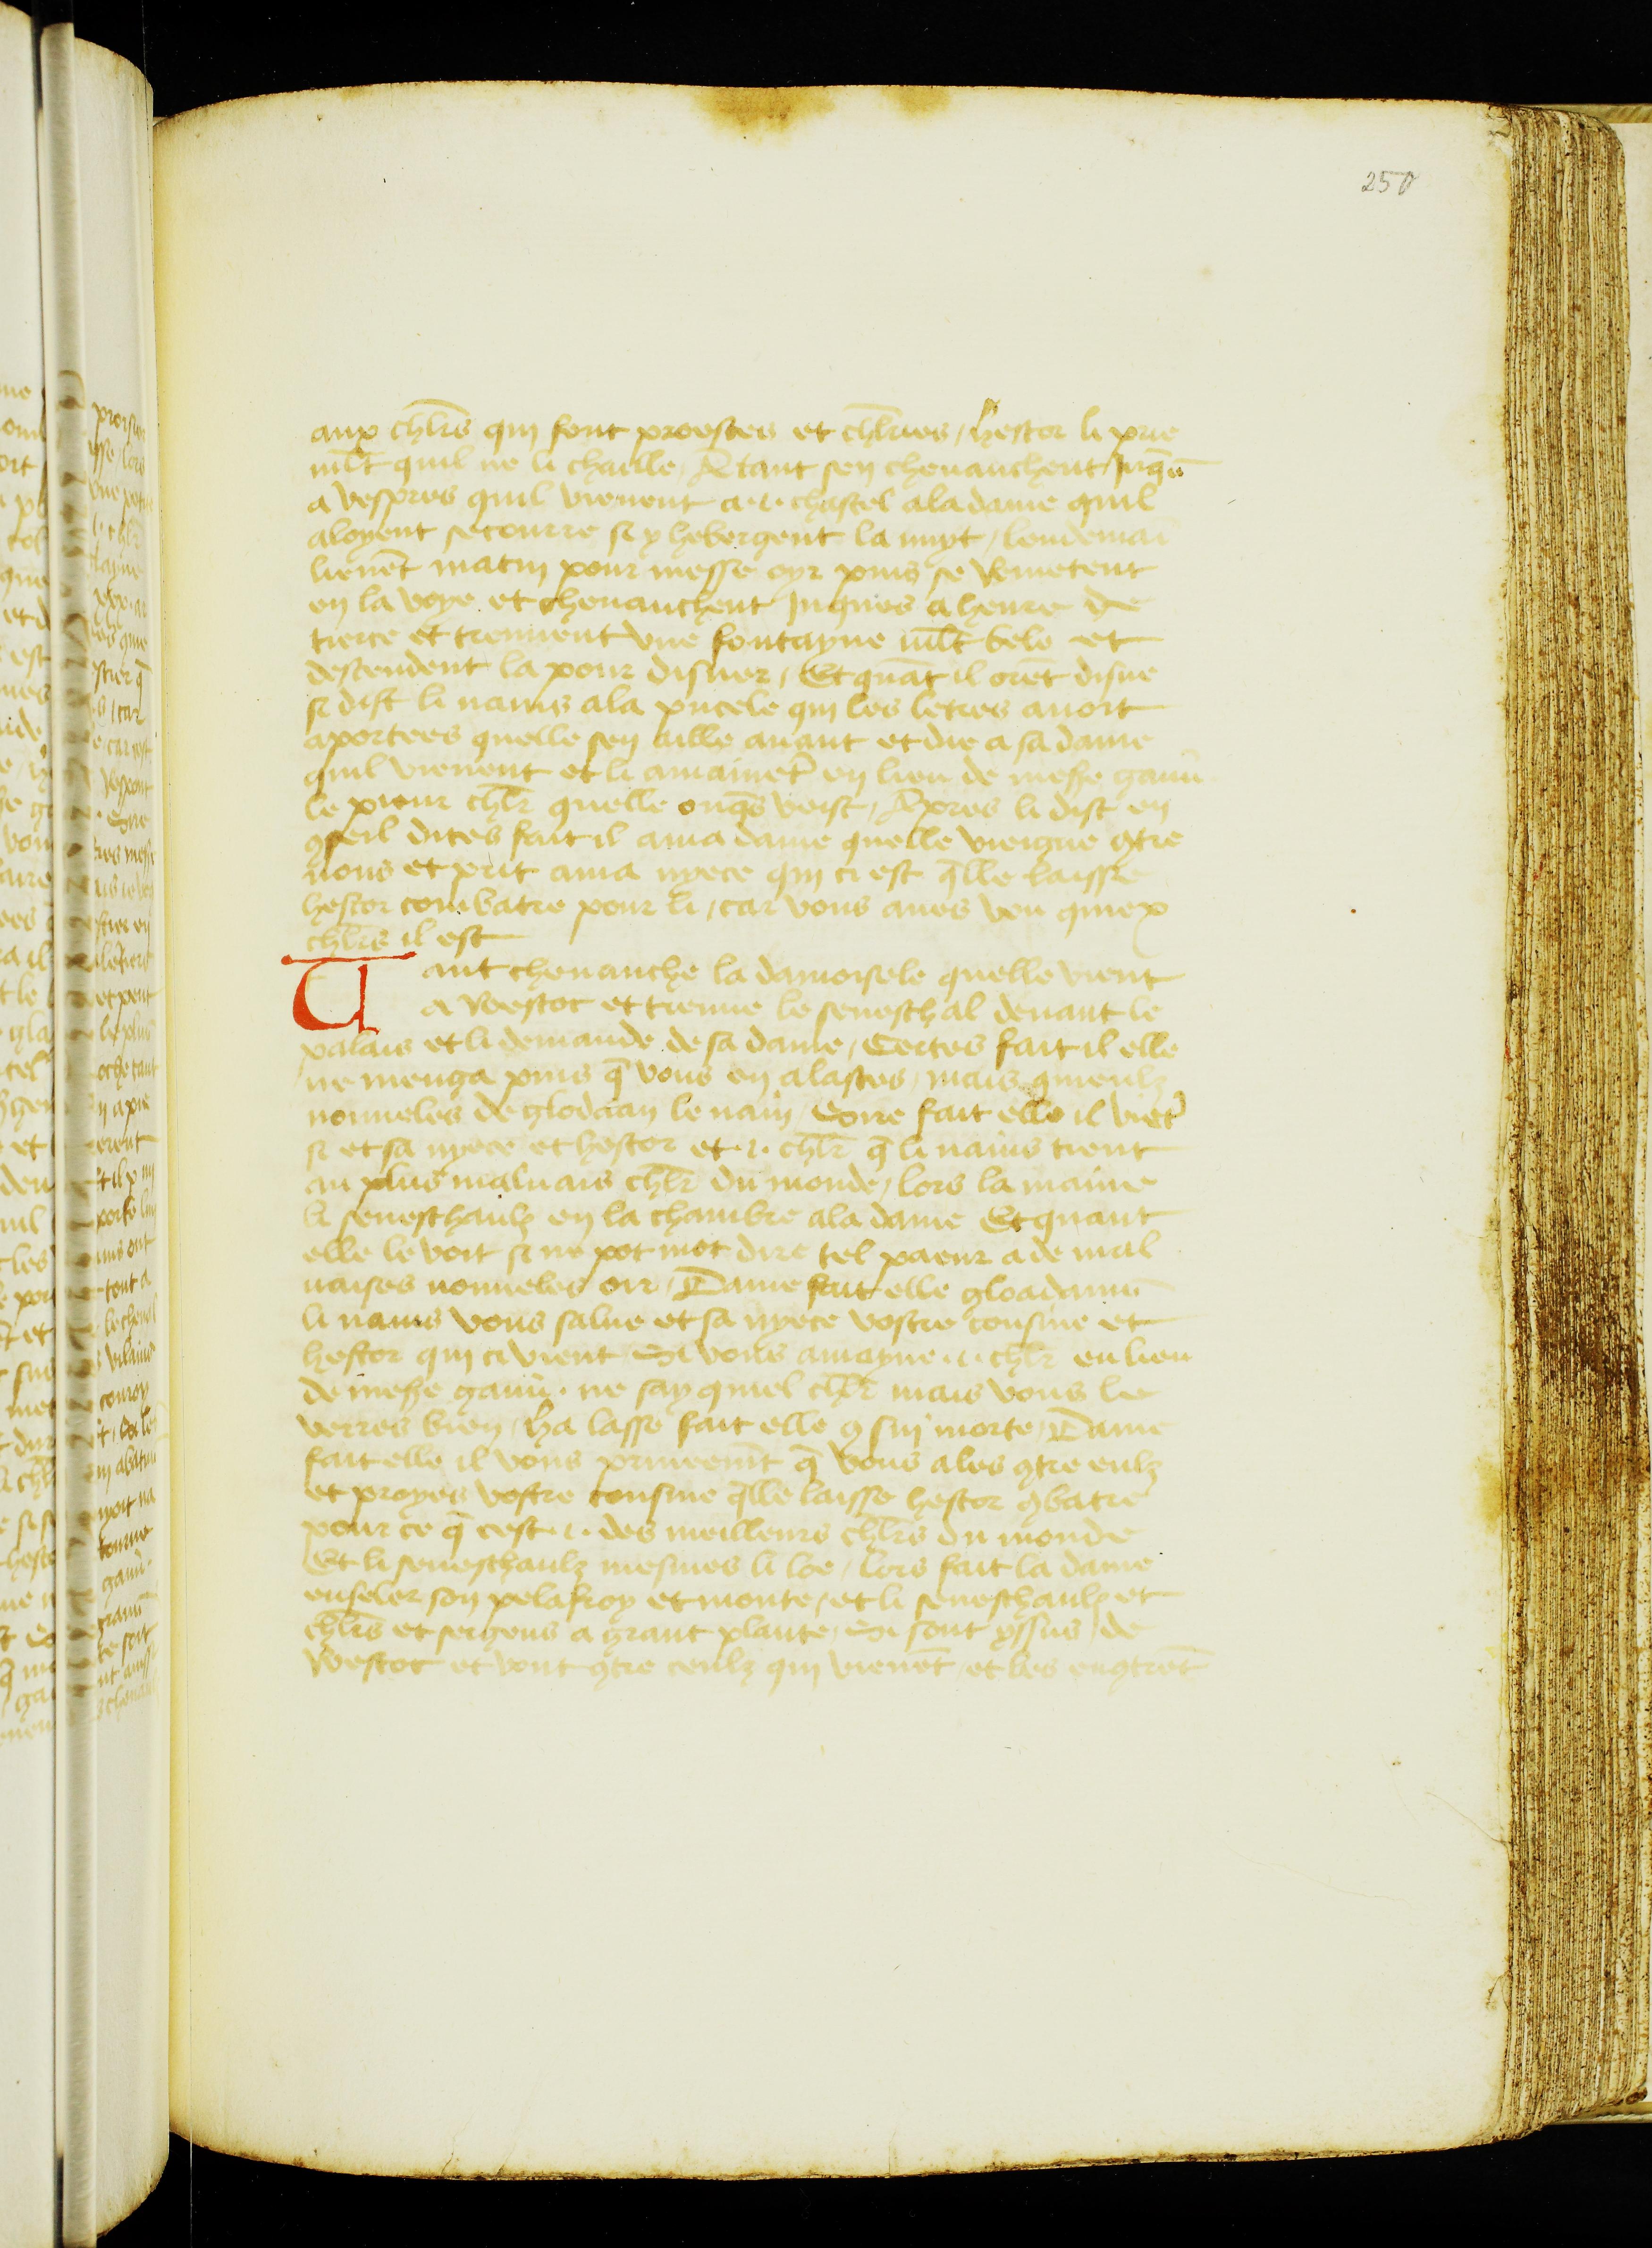 250
aux chlrs qui font proesces et chlries / hector li prie
mlt quil ne li chaille / Atant sen cheuauchent Jusqs
a vespres quil vienent a .i. chastel a la dame quil
aloyent secourre si y hebergent la nuyt / lendemai
lieuẽt matin pour messe oyr puis se remetent
en la voye et cheuauchent Jusques a heure de
tierce et treuuent vne fontayne mlt bele et
descendent la pour disner / Et quãt il orẽt disne
si dist li nains ala pucele qui les letres auoit
aportees quelle sen aille auant et die a sa dame
quil vienent et li amainẽt en lieu de messe gauũ
le pieur chlr quelle onqs veist / Apres li dist en
ꝯseil dites fait il ama dame quelle viengne ꝯtre
nous et prit ama nyece qui ci est q̃lle laisse
hector combatre pour li / car vous aues veu quiex
chlrs il est
Tant cheuauche la damoisele quelle vient
a Westoc et treuue le seneschal deuant le
palais et li demande de sa dame / Certes fait il elle
ne menga puis q̃ vous en alastes / mais quieulz
nouueles de glodaan le nain / Sire fait elle il viẽt
si et sa nyece et hector et .i. chlr q̃ li nains tient
au plus maluais chlr du monde / lors la maine
li seneschaulz en la chambre ala dame Et quant
elle le voit si ne pot mot dire tel paeur a de mal
uaises nouueles oir / Dame fait elle gloadainũ
li nains vous salue et sa nyece vostre cousine et
hector qui ci vient Si vous amayne .i. chlr en lieu
de messe gauũ . ne say quiel chlr mais vous le
verres bien / ha lasse fait elle ꝯ sui morte / Dame
fait elle il vous q̃ vous ales ꝯtre eulz
et proyes vostre cousine q̃lle laisse hector ꝯbatre
pour ce q̃ cest .i. des meilleurs chlrs du monde
Et li seneschaulz mesmes li loe / lors fait la dame
enseler son pelafroy et monte / et li seneschaulz et
chlrs et sergens a grant plante / Si sont yssus de
Westoc et vont ꝯtre ceulz qui vienẽt / et les enꝯtrẽt